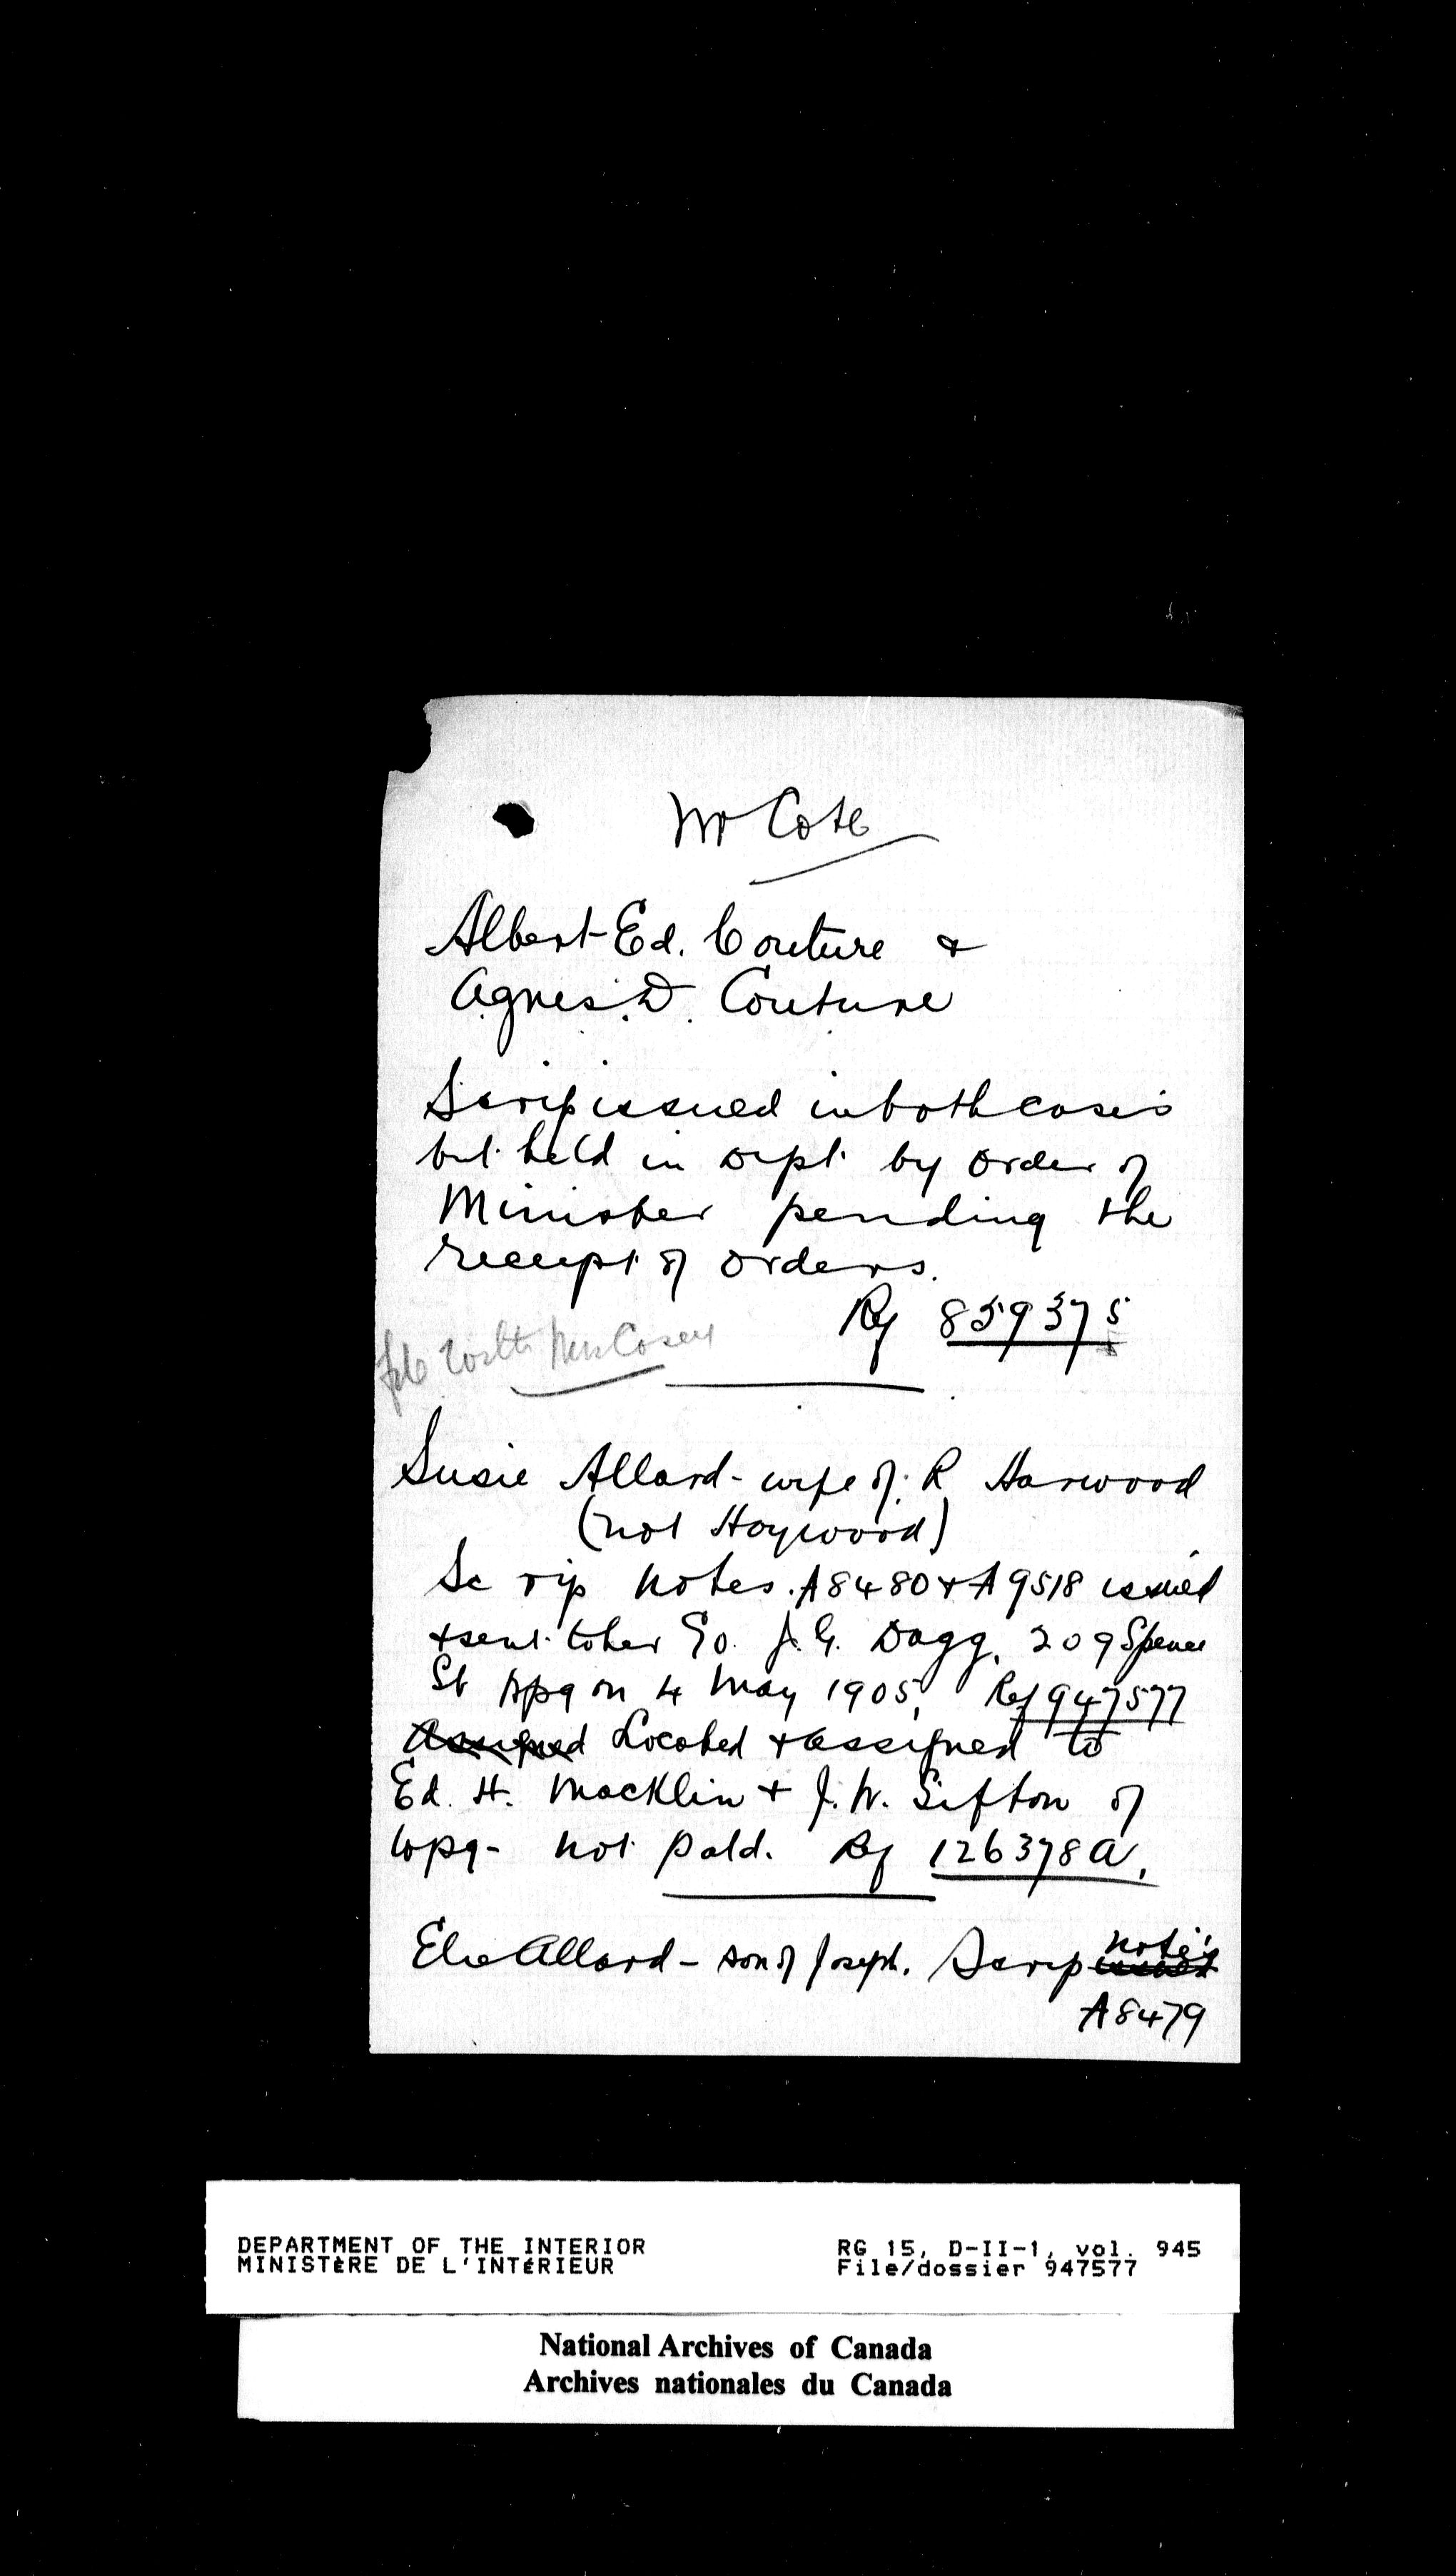 Mr Cote
Albert Ed. Couture &
Agnes D. Couture
Scrip issued in both cases
but held in Dept. by order of
Minister pending the
receipt of orders.
Ref 859375
file with
Susie Allard - wife of R Harwood
(not Haywood)
Scrip notes A8480 & A9518 issued
& sent to her c/o J. G. Dagg, 209 Spence
St Wpg on 4 May 1905, Ref 947577
Assigned Located & assigned to
Ed. H. Macklin & J. W. Sifton of
Wpg - not patd. Ref 126378a.
Elie Allard - son of Joseph. Scrip issued notes
A8479
DEPARTMENT OF THE INTERIOR RG 15, D-II-1, vol. 945
MINISTÈRE DE L'INTÉRIEUR File/dossier 947577
National Archives of Canada
Archives nationales du Canada